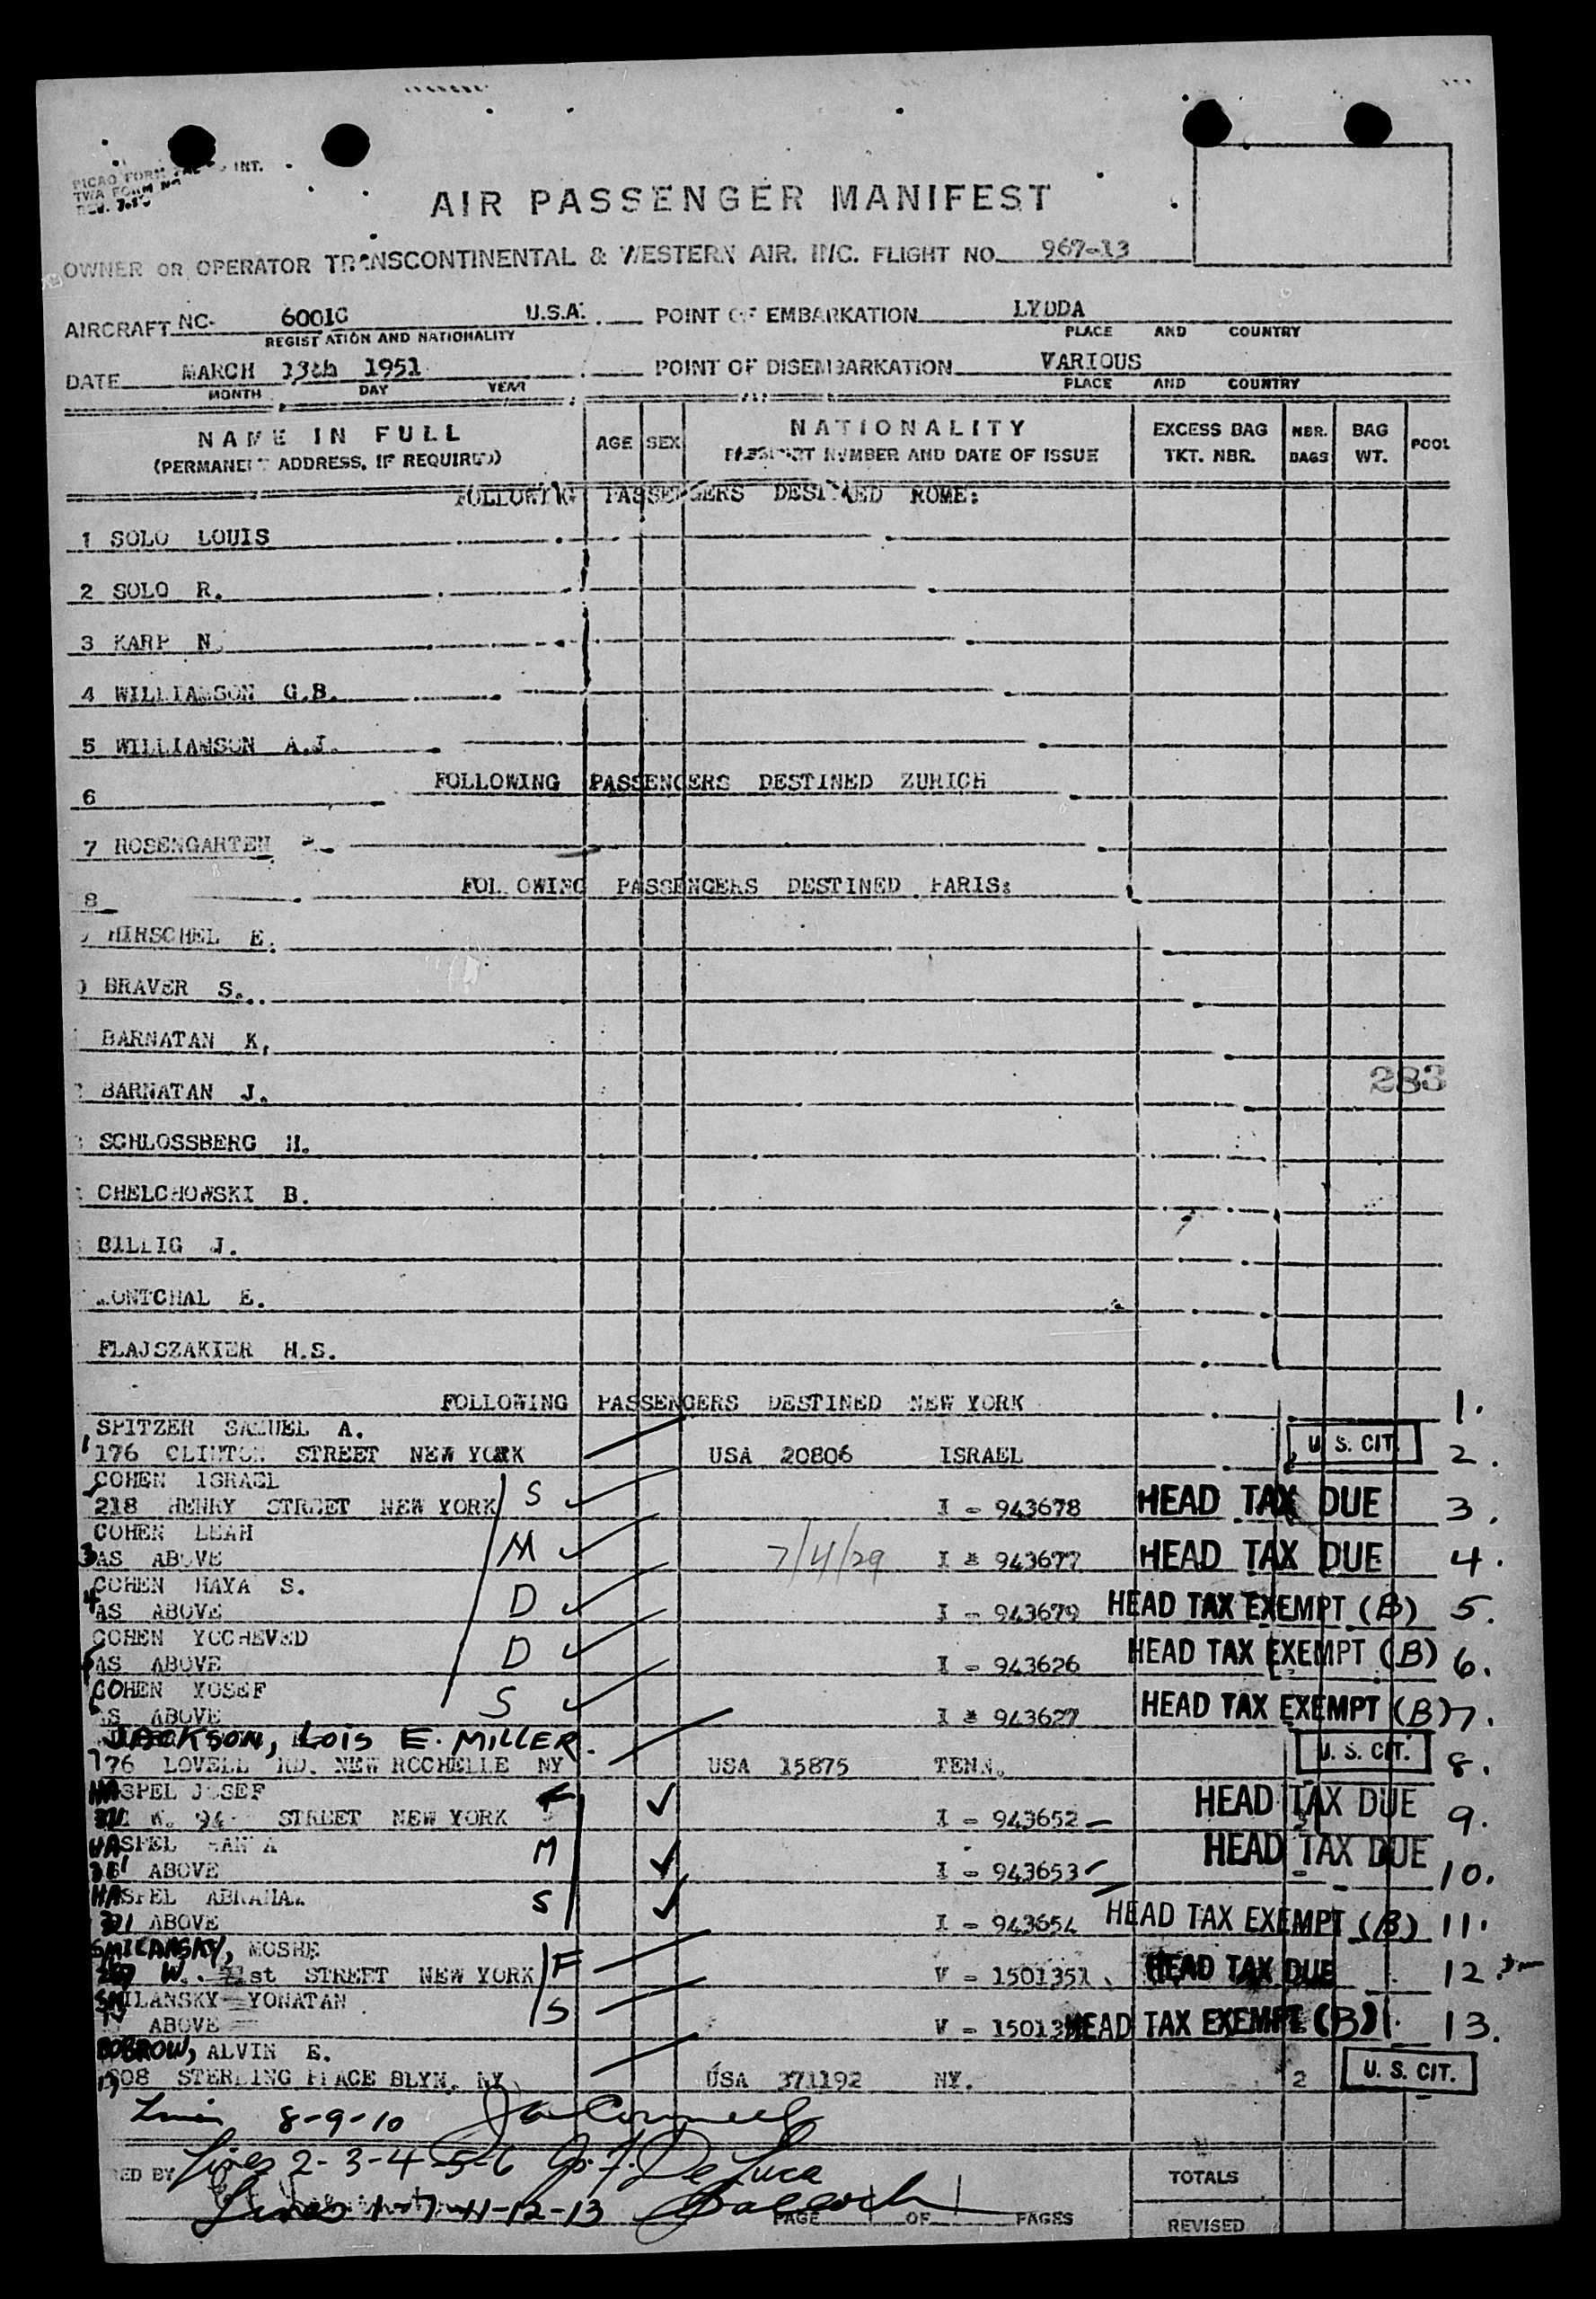 INT.
AIR PASSENGER MANIFEST
OWNER OR OPERATOR TRANSCONTINENTAL & WESTERN AIR. INC. FLIGHT NO. 967-13
AIRCRAFT NC- 6001C U.S.A. POINT OF EMBARKATION LYDDA
REGISTRATION AND NATIONALITY PLACE AND COUNTRY
DATE MARCH 13th 1951 POINT OF DISEMBARKATION VARIOUS
MONTH DAY YEAR PLACE AND COUNTRY
NAME IN FULL AGE SEX NATIONALITY EXCESS BAG NBR. BAG POOL
(PERMANENT ADDRESS, IF REQUIRED) PASSPORT NUMBER AND DATE OF ISSUE TKT. NBR. BAGS WT.
FOLLOWING PASSENGERS DESTINED ROME:
1 SOLO LOUIS
2 SOLO R.
3 KARP N.
4 WILLIAMSON G.B.
5 WILLIAMSON A.J.
6 FOLLOWING PASSENGERS DESTINED ZURICH
7 ROSENGARTEN
8 FOLLOWING PASSENGERS DESTINED PARIS:
HIRSCHEL E.
BRAVER S.
BARNATAN K.
283
BARNATAN J.
SCHLOSSBERG H.
CHELCHOWSKI B.
BILLIG J.
E.
FLAJSZAKIER H.S.
FOLLOWING PASSENGERS DESTINED NEW YORK 1.
SPITZER SAMUEL A.
1 176 CLINTON STREET NEW YORK USA 20806 ISRAEL U.S. CIT. 2.
COHEN ISRAEL
218 HENRY STREET NEW YORK S I - 943678 HEAD TAX DUE 3.
COHEN LEAH
3 AS ABOVE M 7/4/29 I - 943677 HEAD TAX DUE 4.
COHEN HAYA S.
4 AS ABOVE D I - 943679 HEAD TAX EXEMPT (B) 5.
COHEN YOCHEVED
AS ABOVE D I - 943626 HEAD TAX EXEMPT (B) 6.
COHEN YOSEF
AS ABOVE S I - 943627 HEAD TAX EXEMPT (B) 7.
JACKSON, LOIS E. MILLER.
176 LOVELL RD. NEW ROCHELLE NY USA 15875 TENN. U.S. CIT. 8.
HASPEL JOSEF
W. 94 STREET NEW YORK F I - 943652 HEAD TAX DUE 9.
HASPEL
ABOVE M I - 943653 HEAD TAX DUE 10.
HASPEL ABRAHAM
ABOVE S I - 943654 HEAD TAX EXEMPT (B) 11.
SMILANSKY, MOSHE
W. 71st STREET NEW YORK F V - 1501351 HEAD TAX DUE 12.
SMILANSKY YONATAN
ABOVE S V - HEAD TAX EXEMPT (B) 13.
BOBROW, ALVIN E.
STERLING PLACE BLYN. NY USA 371192 NY. 2 U.S. CIT.
8-9-10
Lines 2-3-4-5-6 De Luca
TOTALS
Lines 1-7-11-12-13
PAGE 1 OF 1 PAGES
REVISED